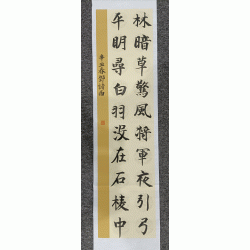 林暗草驚風將軍夜引弓
平明尋白羽沒在石棱中
辛丑春